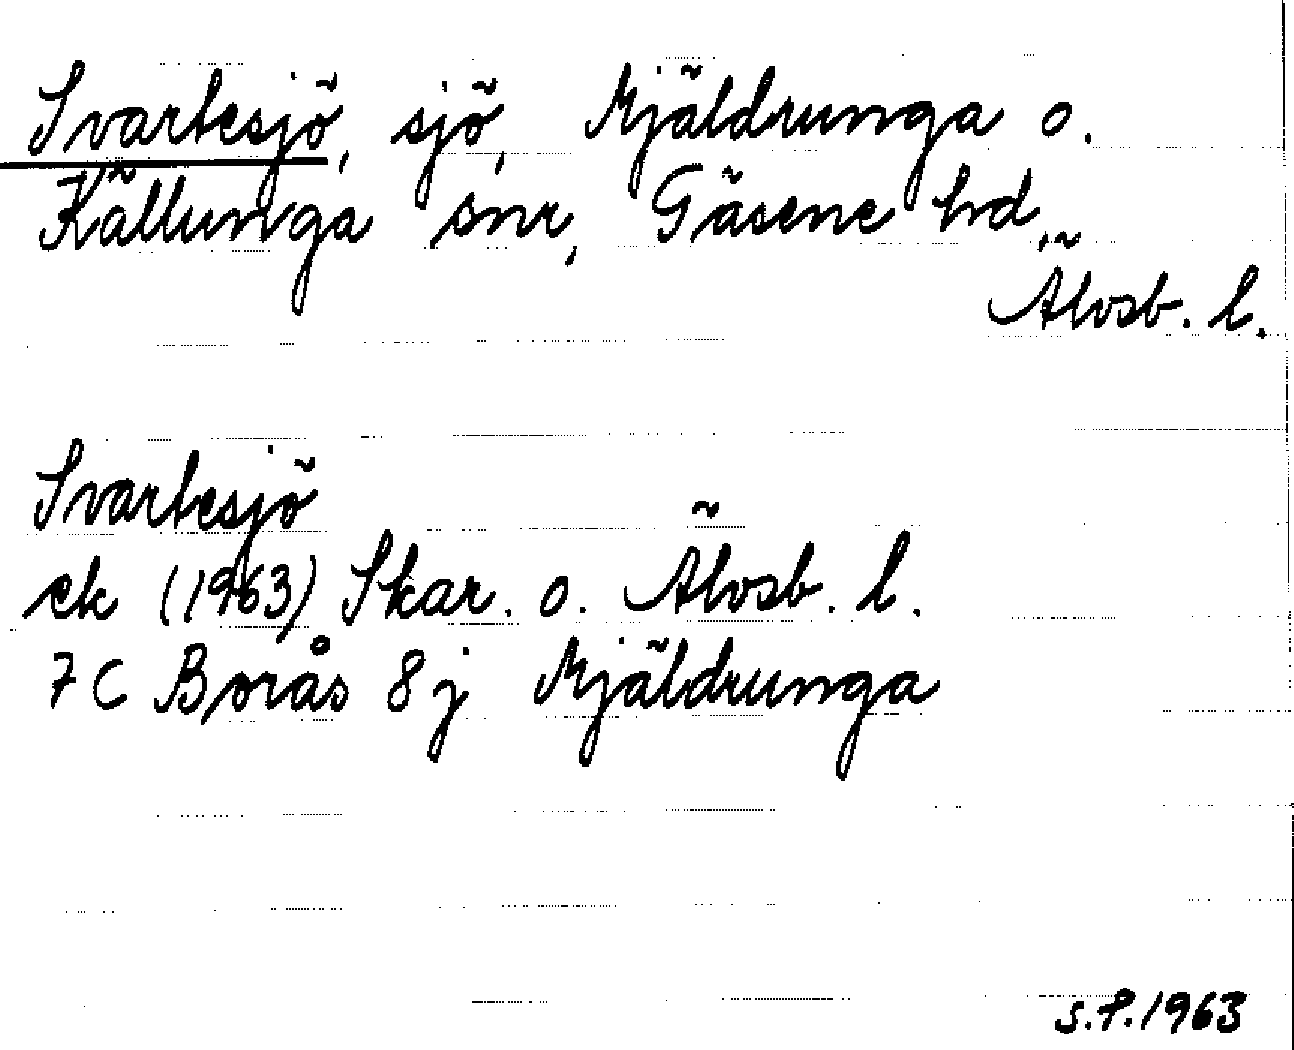 Svartesjö, sjö, Mjäldrunga o.
Källunga snr, Gäsene hd,
Älvsb. l.
Svartesjö
ek (1963) Skar. o. Älvsb. l.
7 C Borås 8 j Mjäldrunga
s.P. 1963